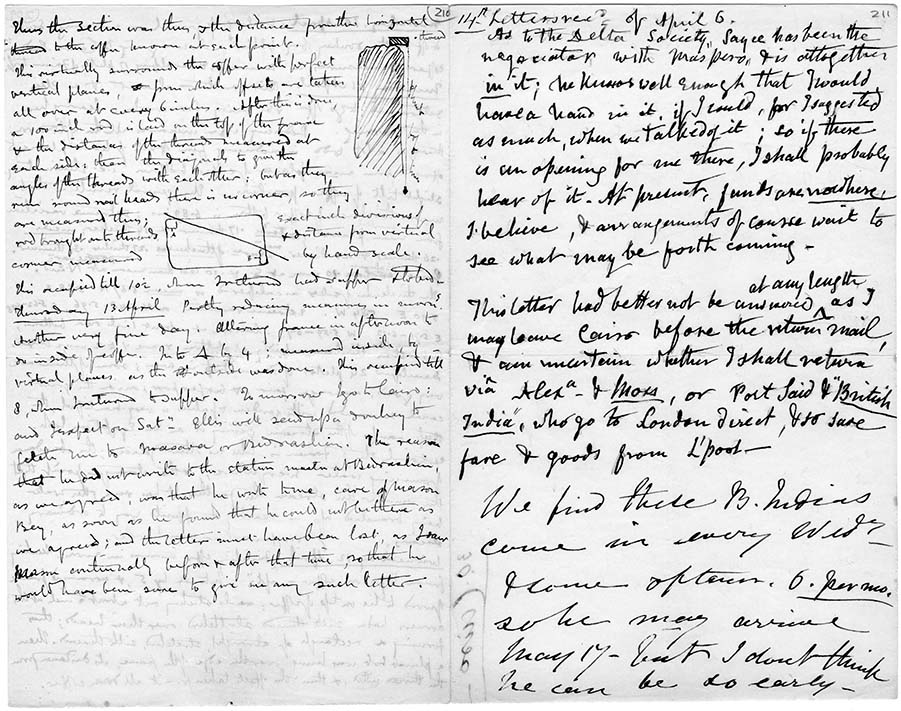 210
Thus the section was thus & the distance from the horizontal
thread to the coffer, known at each point.
This virtually surrounds the coffer with perfect
vertical planes, from which offsets are taken
all over at every 6 inches. After this is done,
a 100 inch rod is laid on the top of the frame
& the distances of the thread measured at
each side; then the diagonals to give the
angles of the threads with each other; but as they
run round nail heads there is no corner, so they
are measured thus;
rod brought into threads
corner measured
exact inch divisions
& distance from virtual
by hand scale.
This occupied till 10½, when I returned had supper & to bed
Thursday 13 April Partly reducing measuring in morng
Another very fine day. Altering frame in afternoon to
do inside of coffer. In to A by 4; measured inside to
virtual planes, as the outside was done. This occupied till
8, when I returned to supper. To morrow I go to Cairo:
and I expect on Saty Ellis will send up a donkey to
fetch me to or Bedrashin. The reason
that he did not write to the station master at Bedrashin,
as we agreed, was that he wrote to me, care of Mason
Bey, as soon as he found that he could not be there as
we agreed; and the letter must have been lost, as I saw
Mason continually before & after that time, so that he
would have been sure to give me any such letter.
211
14th Letters recd of April 6.
As to the Delta Society, Sayce has been the
negociator with Maspero, & is altogether
in it; he knows well enough that I would
have a hand in it, if I could, for I suggested
as much, when we talked of it; so if there
is an opening for me there, I shall probably
hear of it. At present, funds are nowhere,
I believe, & arrangements of course wait to
see what may be forth coming –
at any length
This letter had better not be answered, as I
may leave Cairo before the return mail,
& am uncertain whether I shall return
via Alexa – & Moss, or Port Said & "British
India", who go to London direct, & so save
fare & goods from L'pool –
We find these B. Indias
come in every Wedy
& some oftener. 6. per mo.
so he may arrive
May 17 – but I dont think
he can be so early –